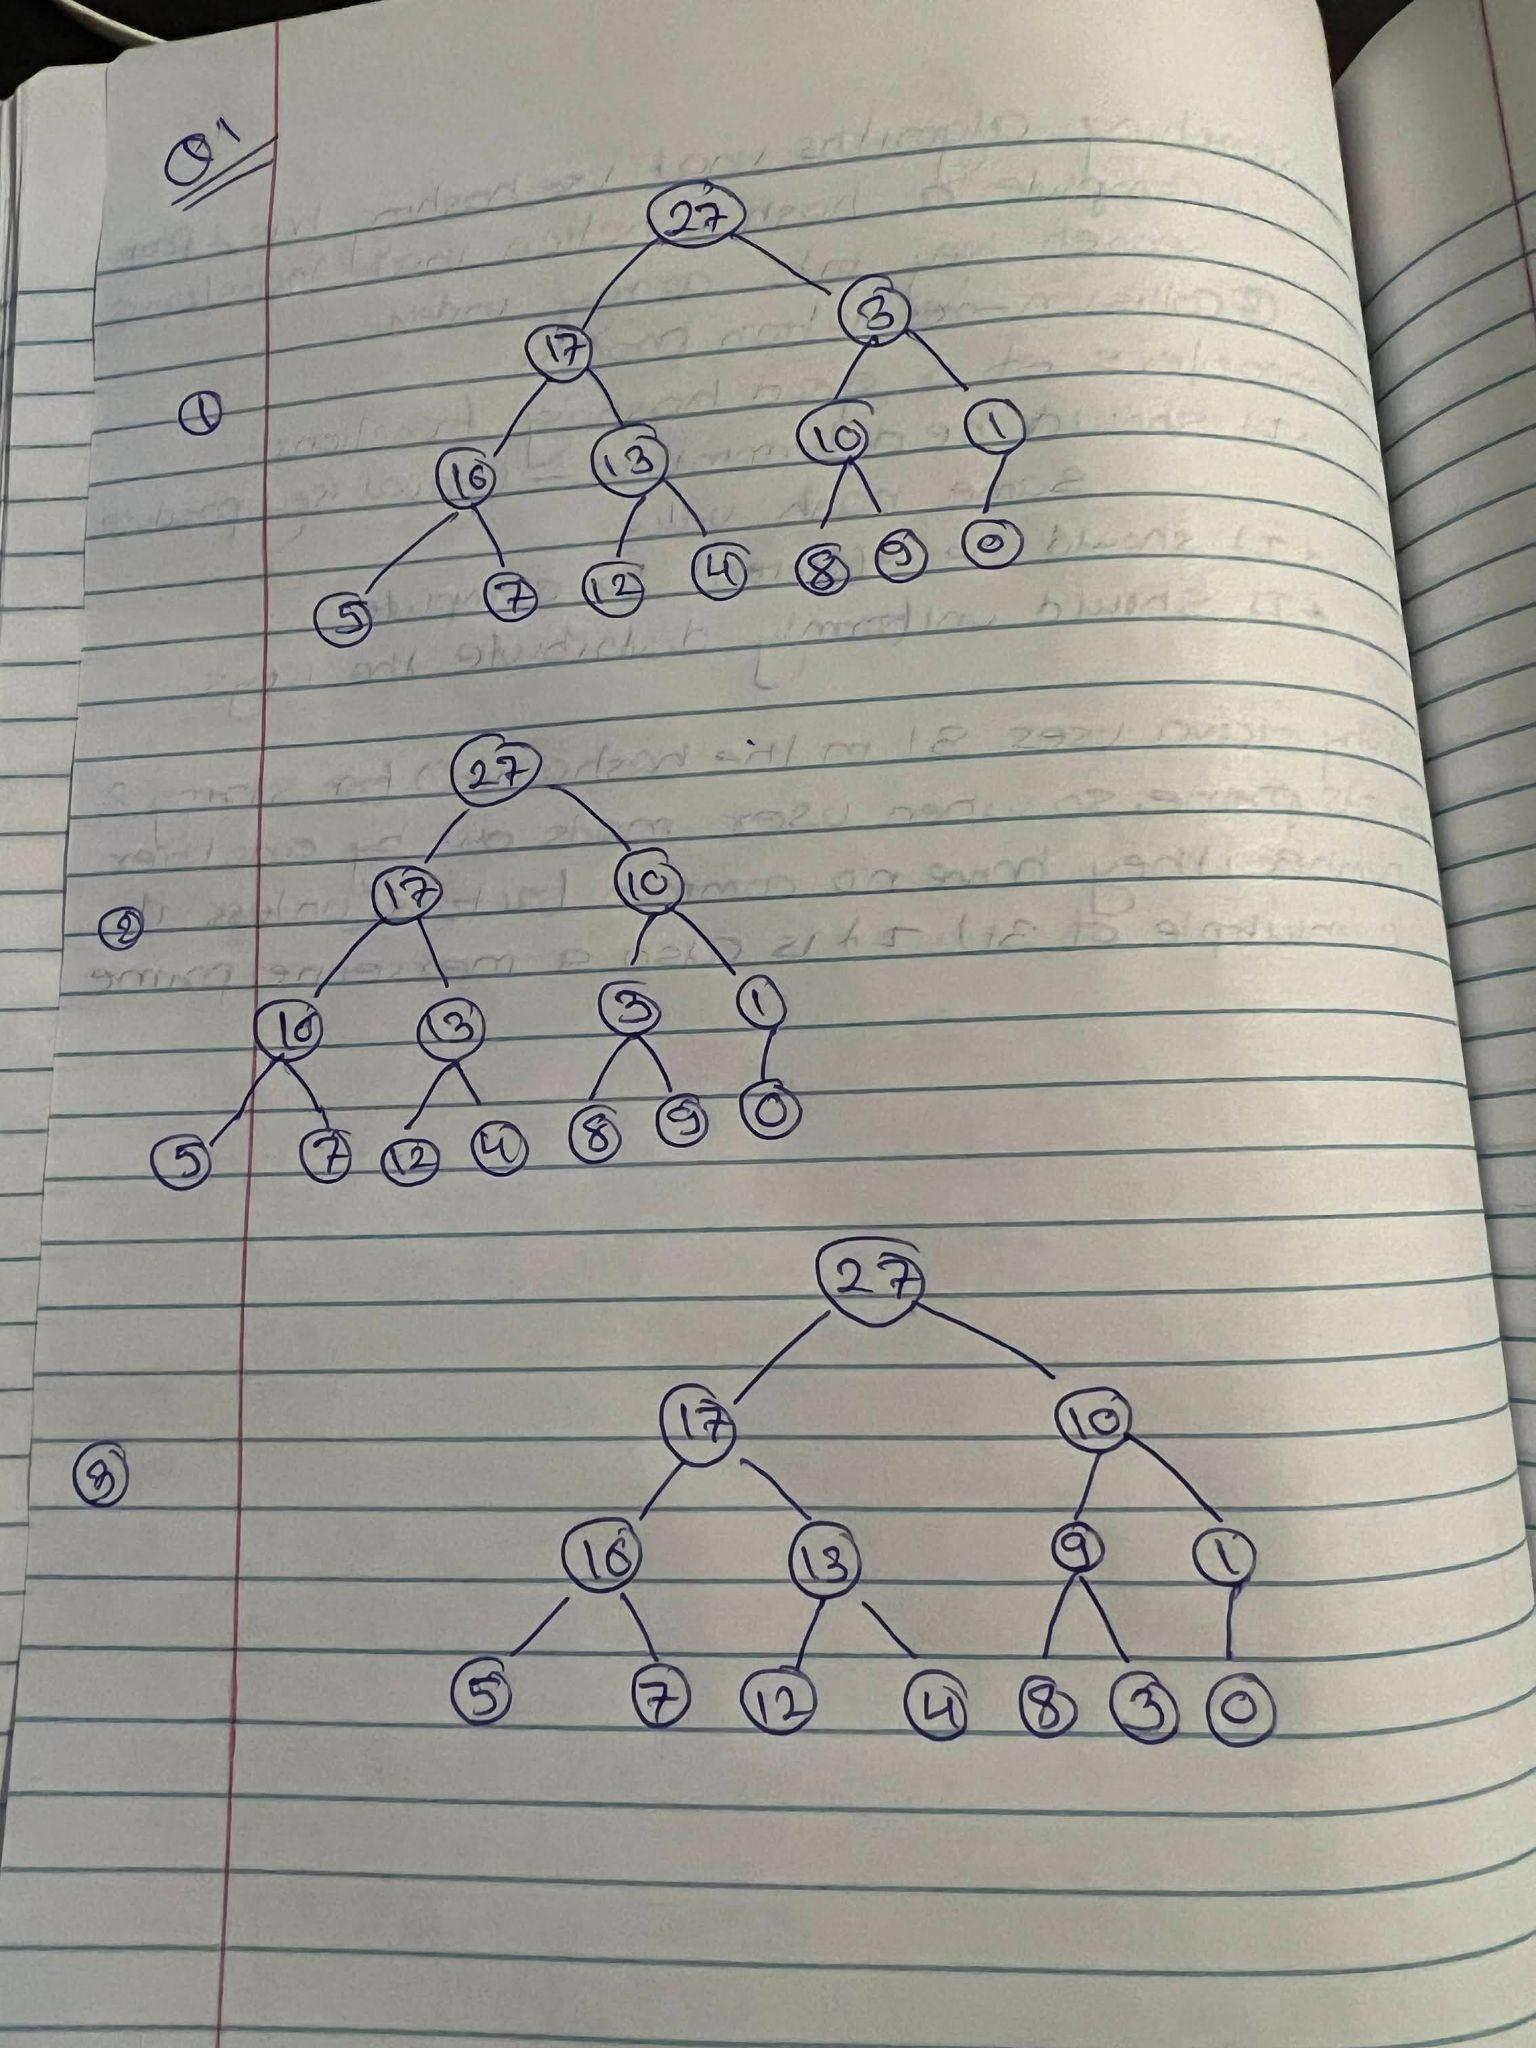 Q1
27
17 3
1
16 13 10 1
5 7 12 4 8 9 0
27
17 10
2
16 13 3 1
5 7 12 4 8 9 0
27
17 10
3
16 13 9 1
5 7 12 4 8 3 0